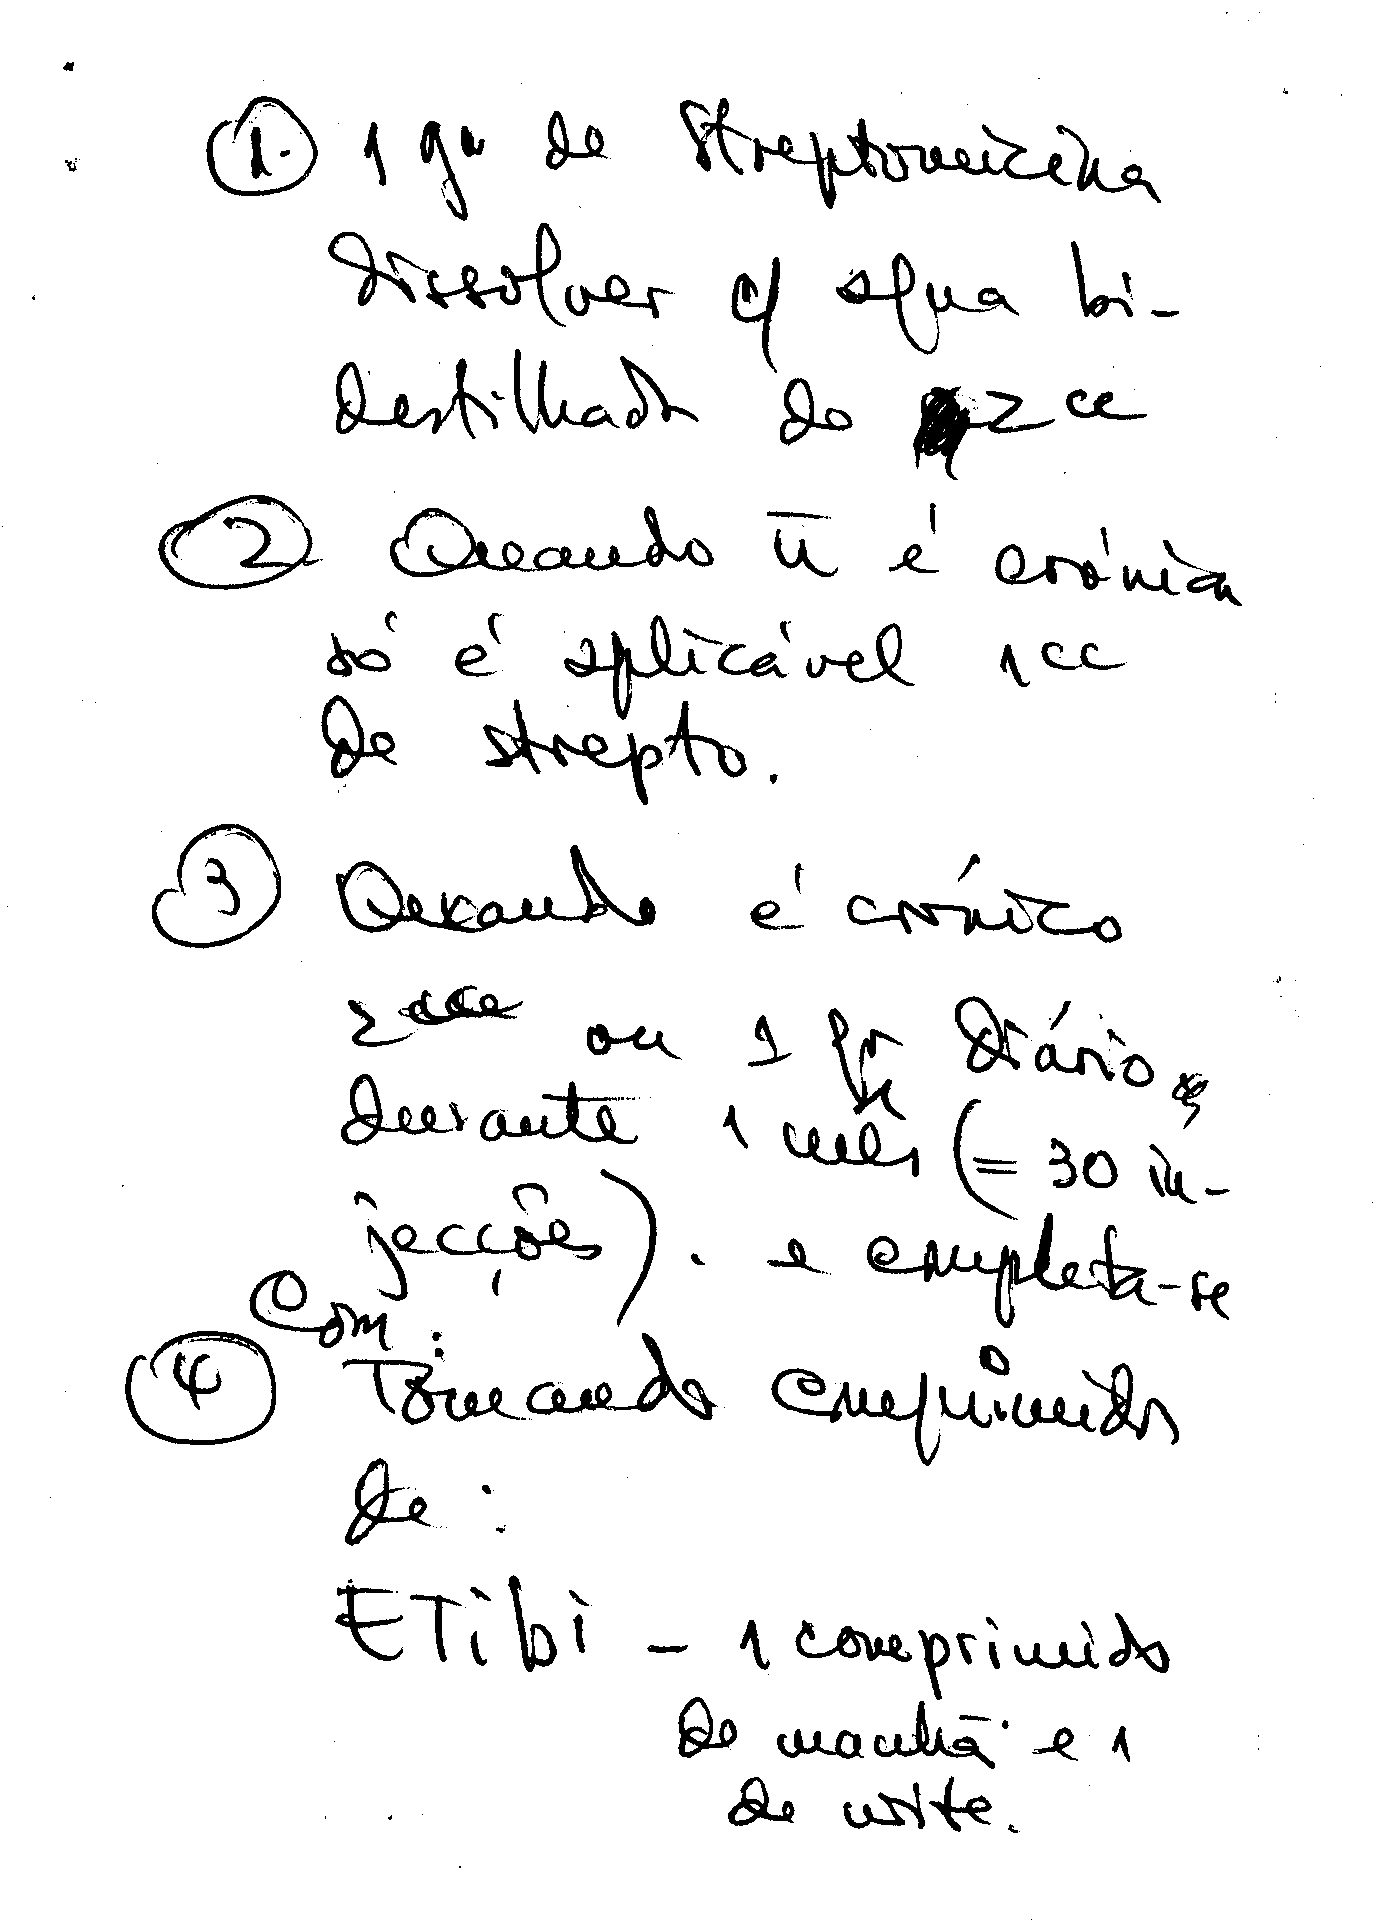 1. 1 gr de Streptomicina
dissolver c/ agua bi-
destilhada de 2 cc
2 Quando ñ é crónica
só é aplicável 1 cc
de strepto.
3 Quando é crónico
2 ou 1 gr diário,
durante 1 mês (= 30 in-
jecções). e completa-se
Com:
4 Tomando comprimidos
de:
ETibi - 1 comprimido
de manhã e 1
de noite.